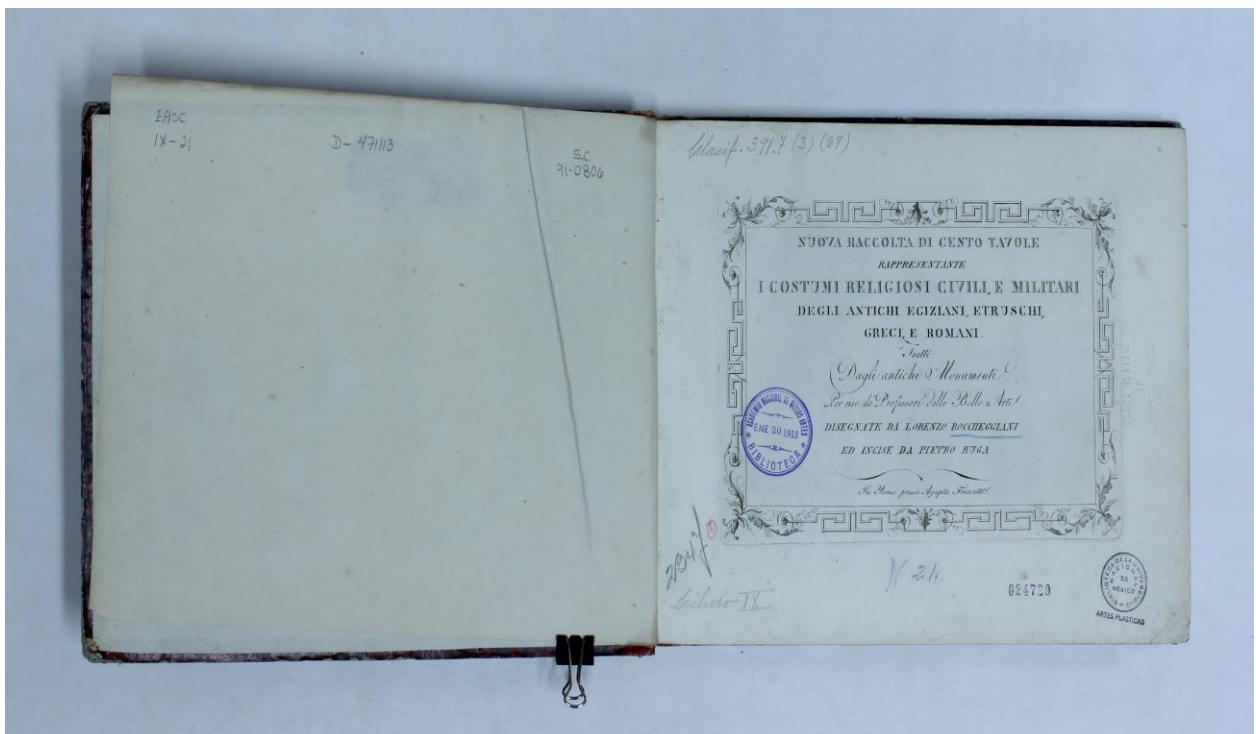 EASC
IX-21
D-471113
S.C
91-0806
Clasif. 391.7 (3) (09)
NUOVA RACCOLTA DI CENTO TAVOLE
RAPPRESENTANTE
I COSTUMI RELIGIOSI CIVILI, E MILITARI
DEGLI ANTICHI EGIZIANI, ETRUSCHI,
GRECI, E ROMANI.
Tratti
Dagli antichi Monumenti
Per uso de' Professori delle Belle Arti
DISEGNATE DA LORENZO ROCCHEGGIANI
ED INCISE DA PIETRO RUGA
In Roma presso Agapito Franzetti
ACADEMIA NACIONAL DE BELLAS ARTES
ENE 20 1913
BIBLIOTECA
2347
N 21.
024720
BIBLIOTECA DE LA UNIVERSIDAD
NACIONAL
DE
MEXICO
ARTES PLASTICAS